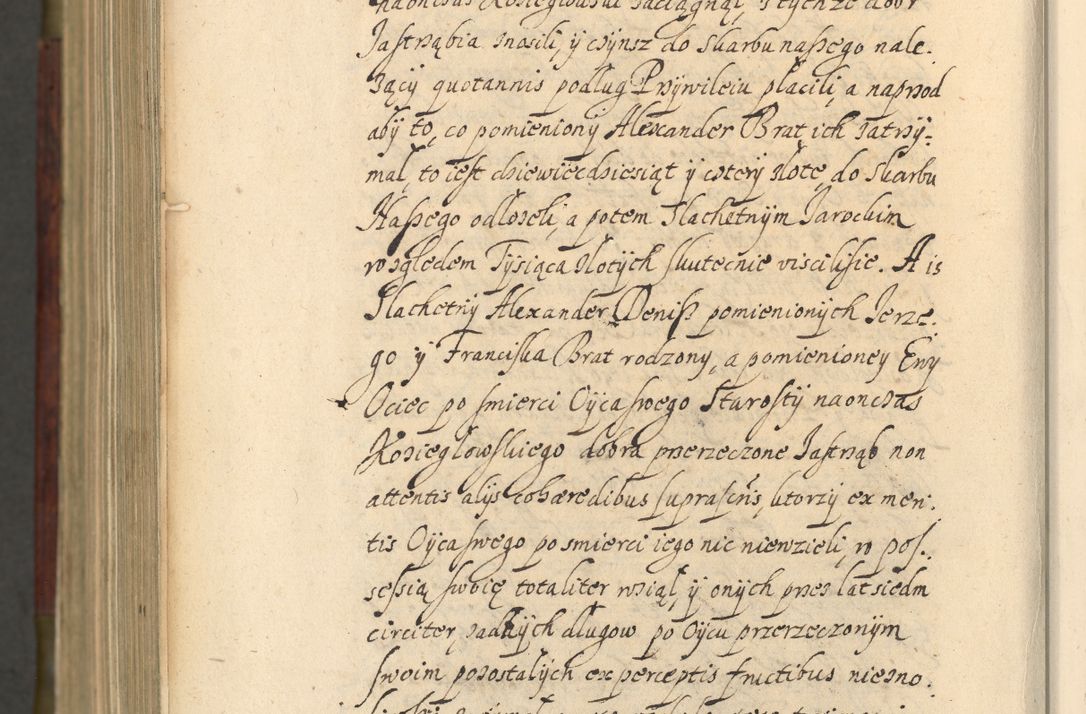 naonczas Kozieglowski zaciągnął, z tychże dobr
Jastrząbia znosili, ÿ czÿnsz do skarbu naszego nale.
żącÿ quotannis podług Przÿwileiu płacili, a naprzod
abÿ to, co pomienionÿ Alexander Brat ich zatrzÿ:
mał, to iest dziewięcdziesiąt ÿ czterÿ złote, do Skarbu
Naszego odłożeli, a potem Slachetnÿm Jarockim
względem Tÿsiąca złotÿch skutecnie visciliſie. A is
Slachetnÿ Alexander Denisz pomienionÿch Jerze.
go ÿ Franciska Brat rodzonÿ, a pomienioneÿ Ewÿ
Ociec po smierci Oÿca swego Starostÿ naonczas
Kozieglowskiego dobra przerzeczone Jastrząb non
attentis alÿs cohæredibus suprascrip̃tis, ktorzÿ ex men:
tis Oÿca swego po smierci iego nic niewzieli, w pos:
sessią swoię totaliter wziął, ÿ onÿch przez lat siedm
circiter żadnÿch długow po Oÿcu przerzeczonÿm
swoim pozostałÿch ex perceptis fructibus niezno.